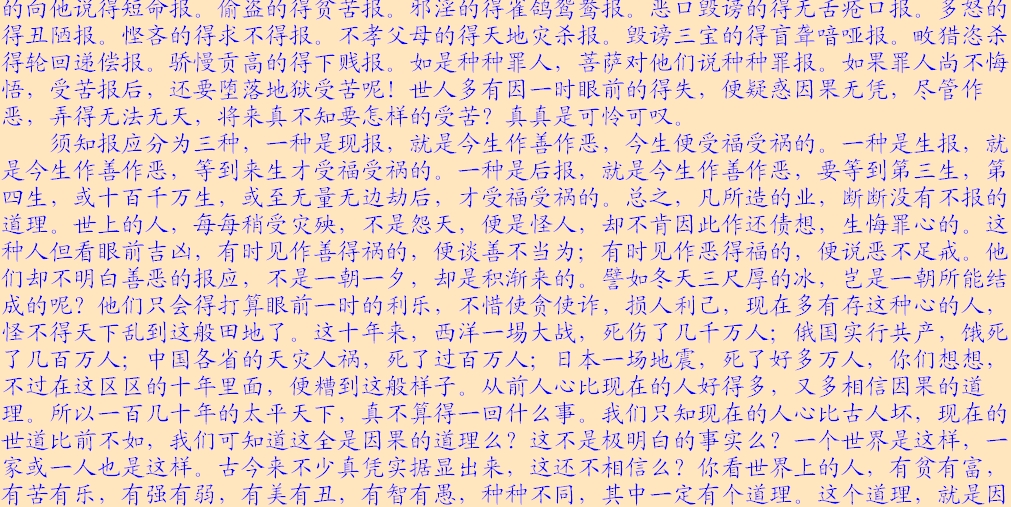 的向他说得短命报。偷盗的得贫苦报。邪淫的得雀鸽鸳鸯报。恶口毁谤的得无舌疮口报。多怒的
得丑陋报。悭吝的得求不得报。不孝父母的得天地灾杀报。毁谤三宝的得盲聋喑哑报。畋猎恣杀
得轮回递偿报。骄慢贡高的得下贱报。如是种种罪人，菩萨对他们说种种罪报。如果罪人尚不悔
悟，受苦报后，还要堕落地狱受苦呢！世人多有因一时眼前的得失，便疑惑因果无凭，尽管作
恶，弄得无法无天，将来真不知要怎样的受苦？真真是可怜可叹。
须知报应分为三种，一种是现报，就是今生作善作恶，今生便受福受祸的。一种是生报，就
是今生作善作恶，等到来生才受福受祸的。一种是后报，就是今生作善作恶，要等到第三生，第
四生，或十百千万生，或至无量无边劫后，才受福受祸的。总之，凡所造的业，断断没有不报的
道理。世上的人，每每稍受灾殃，不是怨天，便是怪人，却不肯因此作还债想，生悔罪心的。这
种人但看眼前吉凶，有时见作善得祸的，便谈善不当为；有时见作恶得福的，便说恶不足戒。他
们却不明白善恶的报应，不是一朝一夕，却是积渐来的。譬如冬天三尺厚的冰，岂是一朝所能结
成的呢？他们只会得打算眼前一时的利乐，不惜使贪使诈，损人利己，现在多有存这种心的人，
怪不得天下乱到这般田地了。这十年来，西洋一場大战，死伤了几千万人；俄国实行共产，饿死
了几百万人；中国各省的天灾人祸，死了过百万人；日本一场地震，死了好多万人，你们想想，
不过在这区区的十年里面，便糟到这般样子。从前人心比现在的人好得多，又多相信因果的道
理。所以一百几十年的太平天下，真不算得一回什么事。我们只知现在的人心比古人坏，现在的
世道比前不如，我们可知道这全是因果的道理么？这不是极明白的事实么？一个世界是这样，一
家或一人也是这样。古今来不少真凭实据显出来，这还不相信么？你看世界上的人，有贫有富，
有苦有乐，有强有弱，有美有丑，有智有愚，种种不同，其中一定有个道理。这个道理，就是因